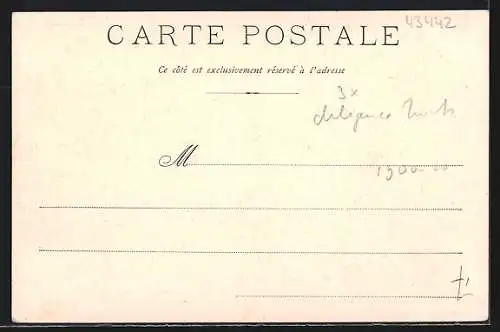 43442
CARTE POSTALE
Ce côté est exclusivement réservé à l'adresse
3x
M